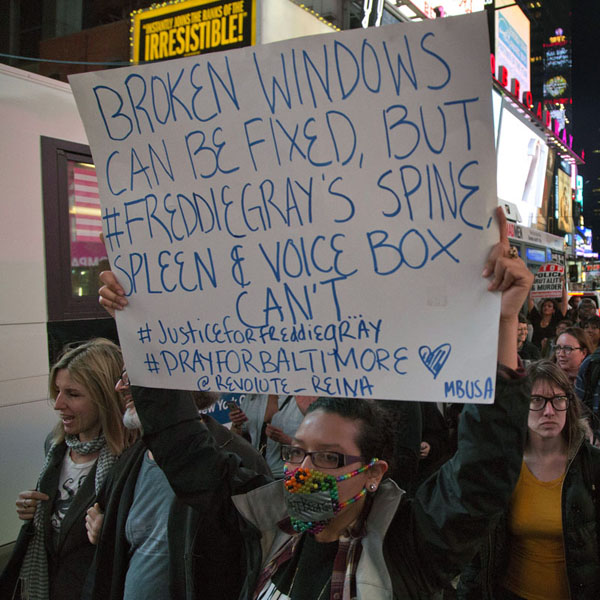 "INSTANTLY JOINS THE RANKS OF THE
IRRESISTIBLE!"
BROKEN WINDOWS
CAN BE FIXED, BUT
#FREDDIEGRAY'S SPINE,
SPLEEN & VOICE BOX
CAN'T
#JUSTICEFORFREDDIEGRAY
#PRAYFORBALTIMORE
@REVOLUTE_REINA
MBUSA
POLICE
BRUTALITY
& MURDER